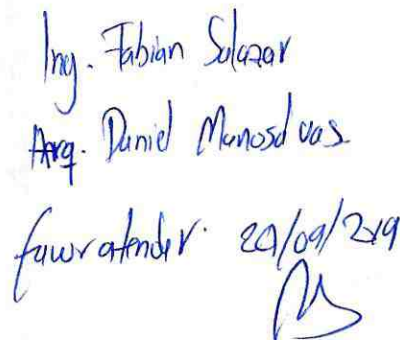 Ing. Fabian Salazar
Arq. Daniel Manosalvas
favor atender. 20/09/2019